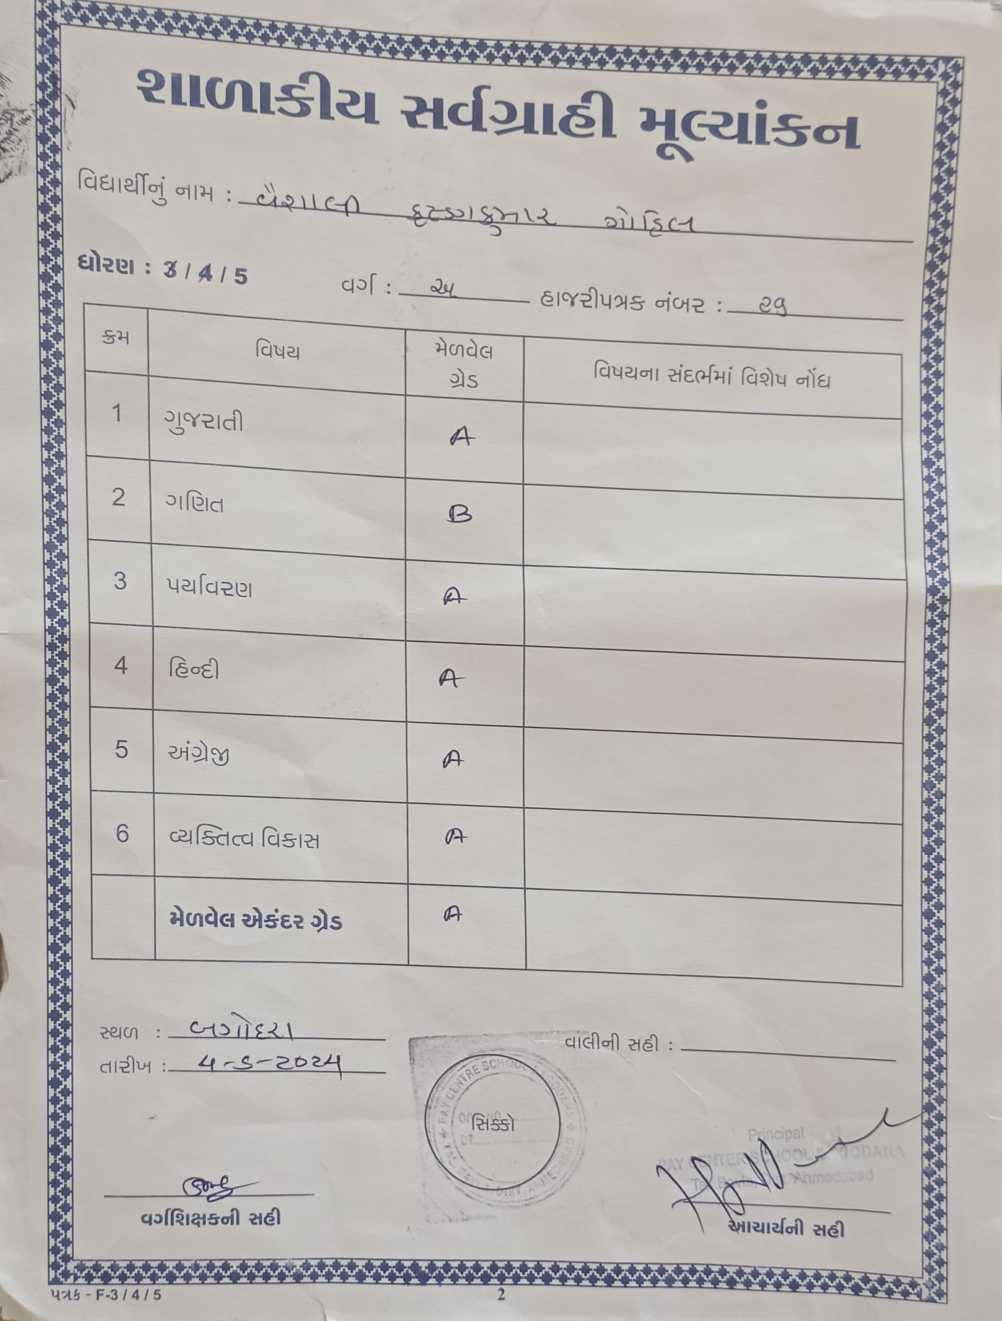 શાળાકીય સર્વગ્રાહી મૂલ્યાંકન
વિદ્યાર્થીનું નામ : વૈશાલી કૃષ્ણકુમાર ગોહિલ
ધોરણ : 3 / 4 / 5 વર્ગ : અ હાજરીપત્રક નંબર : ૨૭
ક્રમ વિષય મેળવેલ ગ્રેડ વિષયના સંદર્ભમાં વિશેષ નોંધ
1 ગુજરાતી A
2 ગણિત B
3 પર્યાવરણ A
4 હિન્દી A
5 અંગ્રેજી A
6 વ્યક્તિત્વ વિકાસ A
મેળવેલ એકંદર ગ્રેડ A
સ્થળ : બગોદરા વાલીની સહી :
તારીખ : 4-5-2024
સિક્કો
Principal
PAY CENTER SCHOOL
Ahmedabad
વર્ગશિક્ષકની સહી
આચાર્યની સહી
પત્રક - F-3 / 4 / 5 2